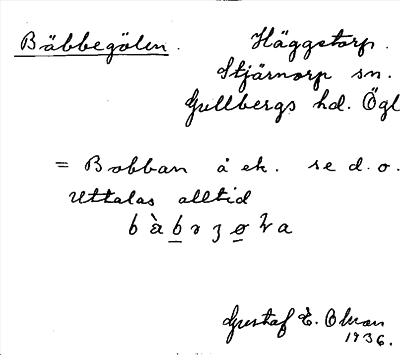 Bäbbegölen.
Häggstorp.
Stjärnorp sn.
Gullbergs hd. Ögl
= Bobban å ek. se d.o.
Uttalas alltid
Gustaf E. Olson
1936.